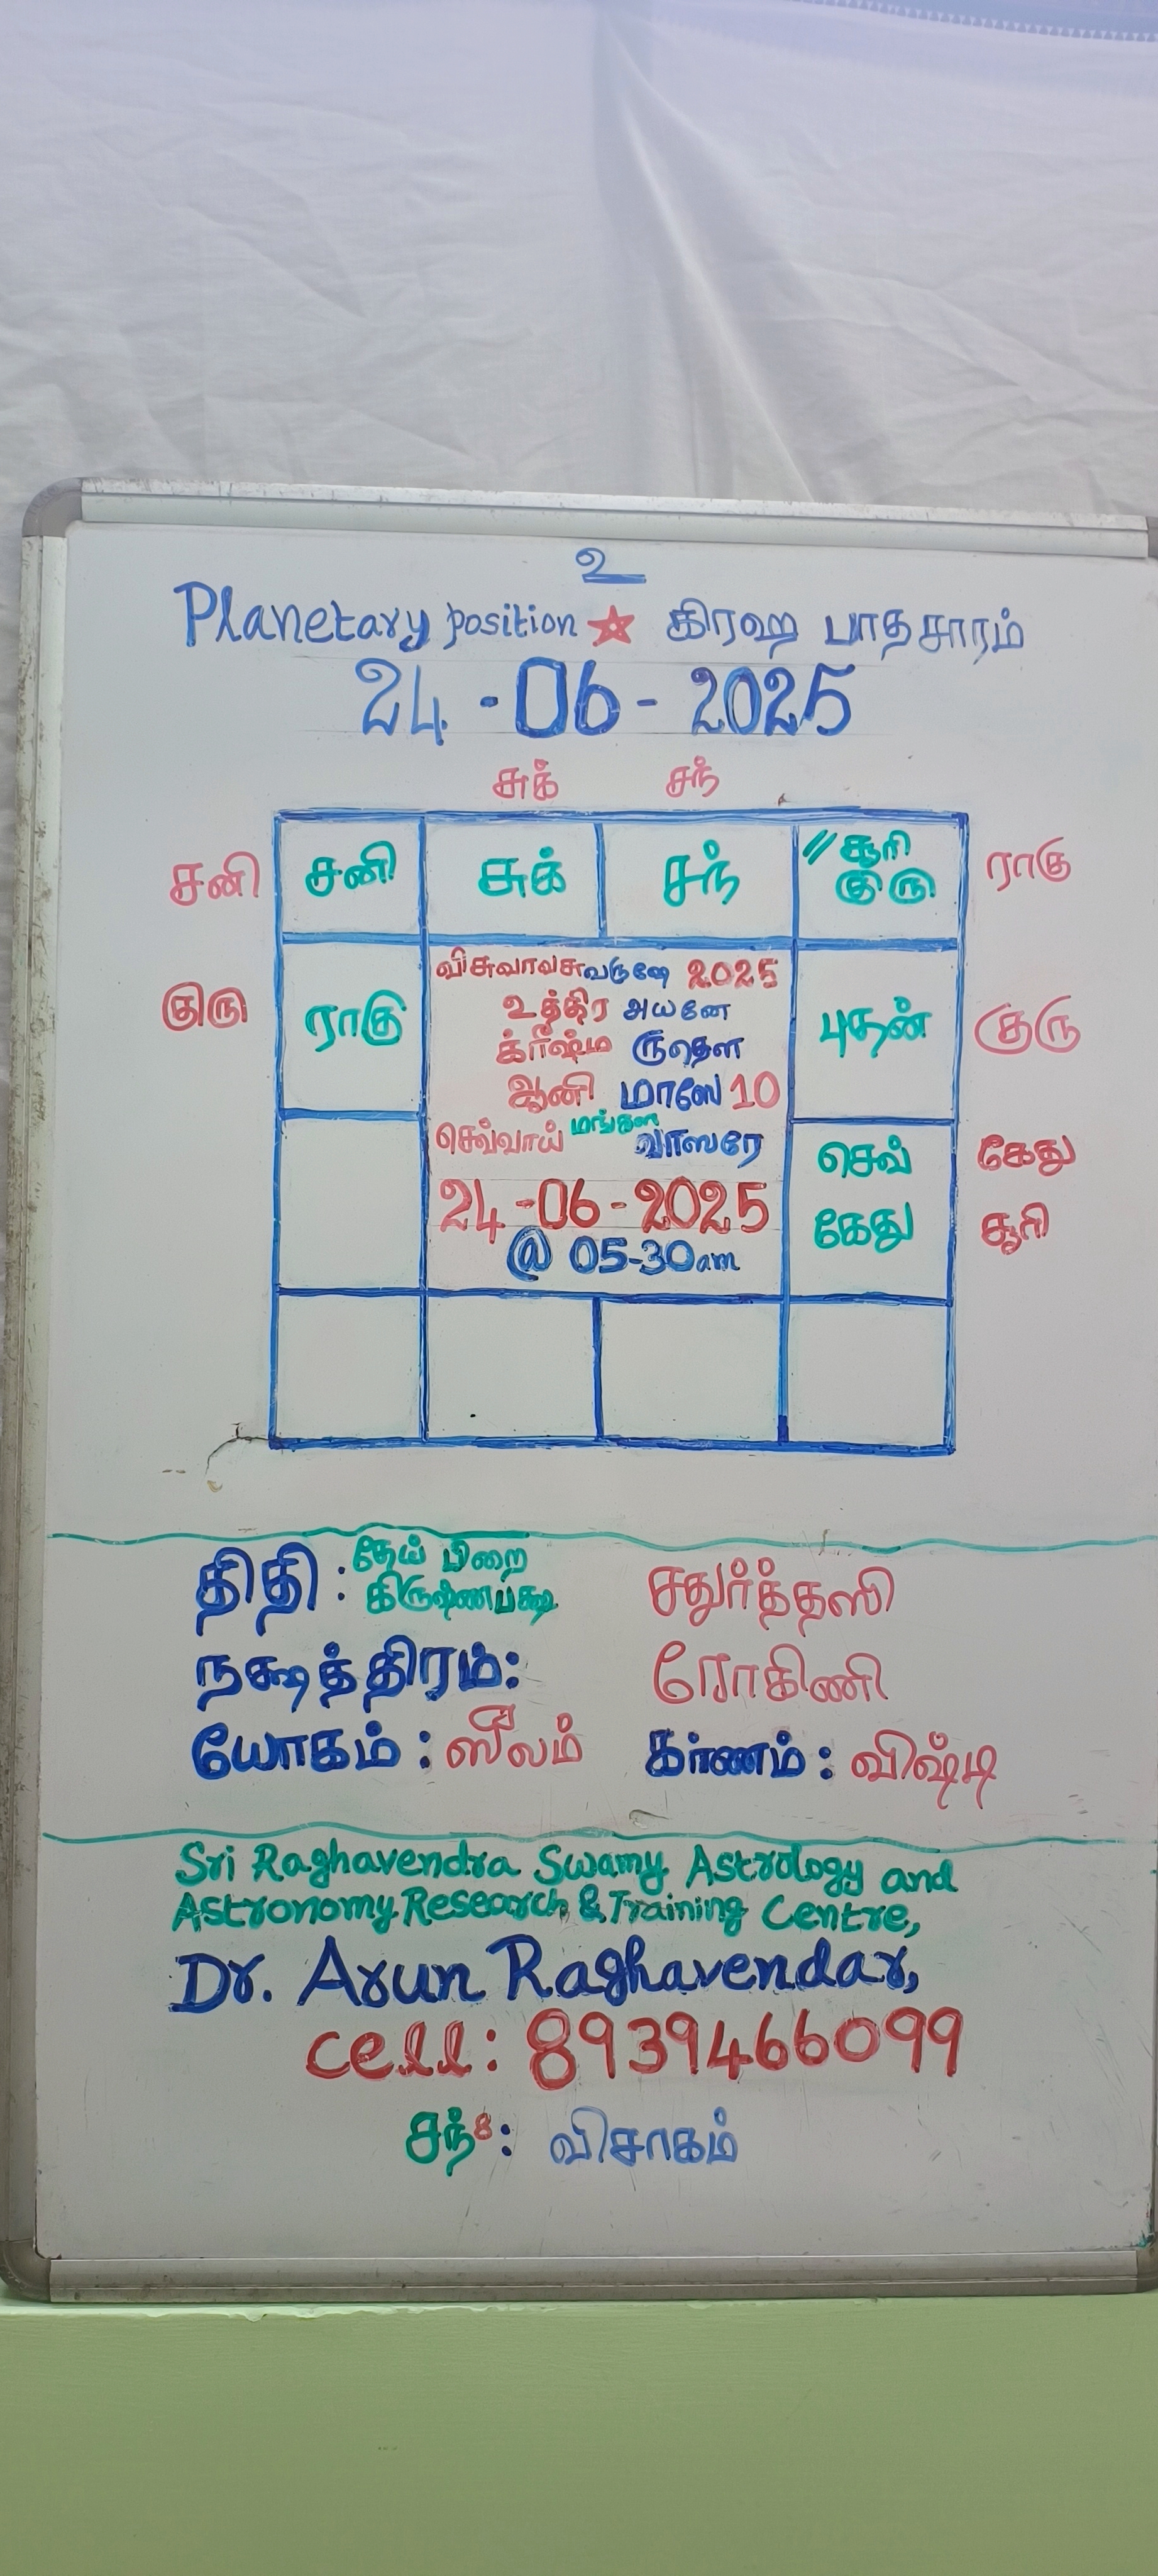 உ
Planetary position கிரஹ பாதசாரம்
24-06-2025
சுக் சந்
சனி சனி சுக் சந் // சூரி ராகு
குரு
குரு ராகு புதன் குரு
விசுவாவசுவருஷே 2025
உத்திர அயனே
க்ரீஷ்ம ருதௌ
ஆனி மாஸே 10
செவ்வாய் மங்கள வாஸரே
24-06-2025
@ 05-30am
செவ் கேது
கேது சூரி
திதி : தேய் பிறை சதுர்த்தஸி
கிருஷ்ணபக்ஷ
நக்ஷத்திரம்: ரோகிணி
யோகம் : ஸீலம் கர்ணம் : விஷ்டி
Sri Raghavendra Swamy Astrology and
Astronomy Research & Training Centre,
Dr. Arun Raghavendar,
cell: 8939466099
சந் 8 : விசாகம்